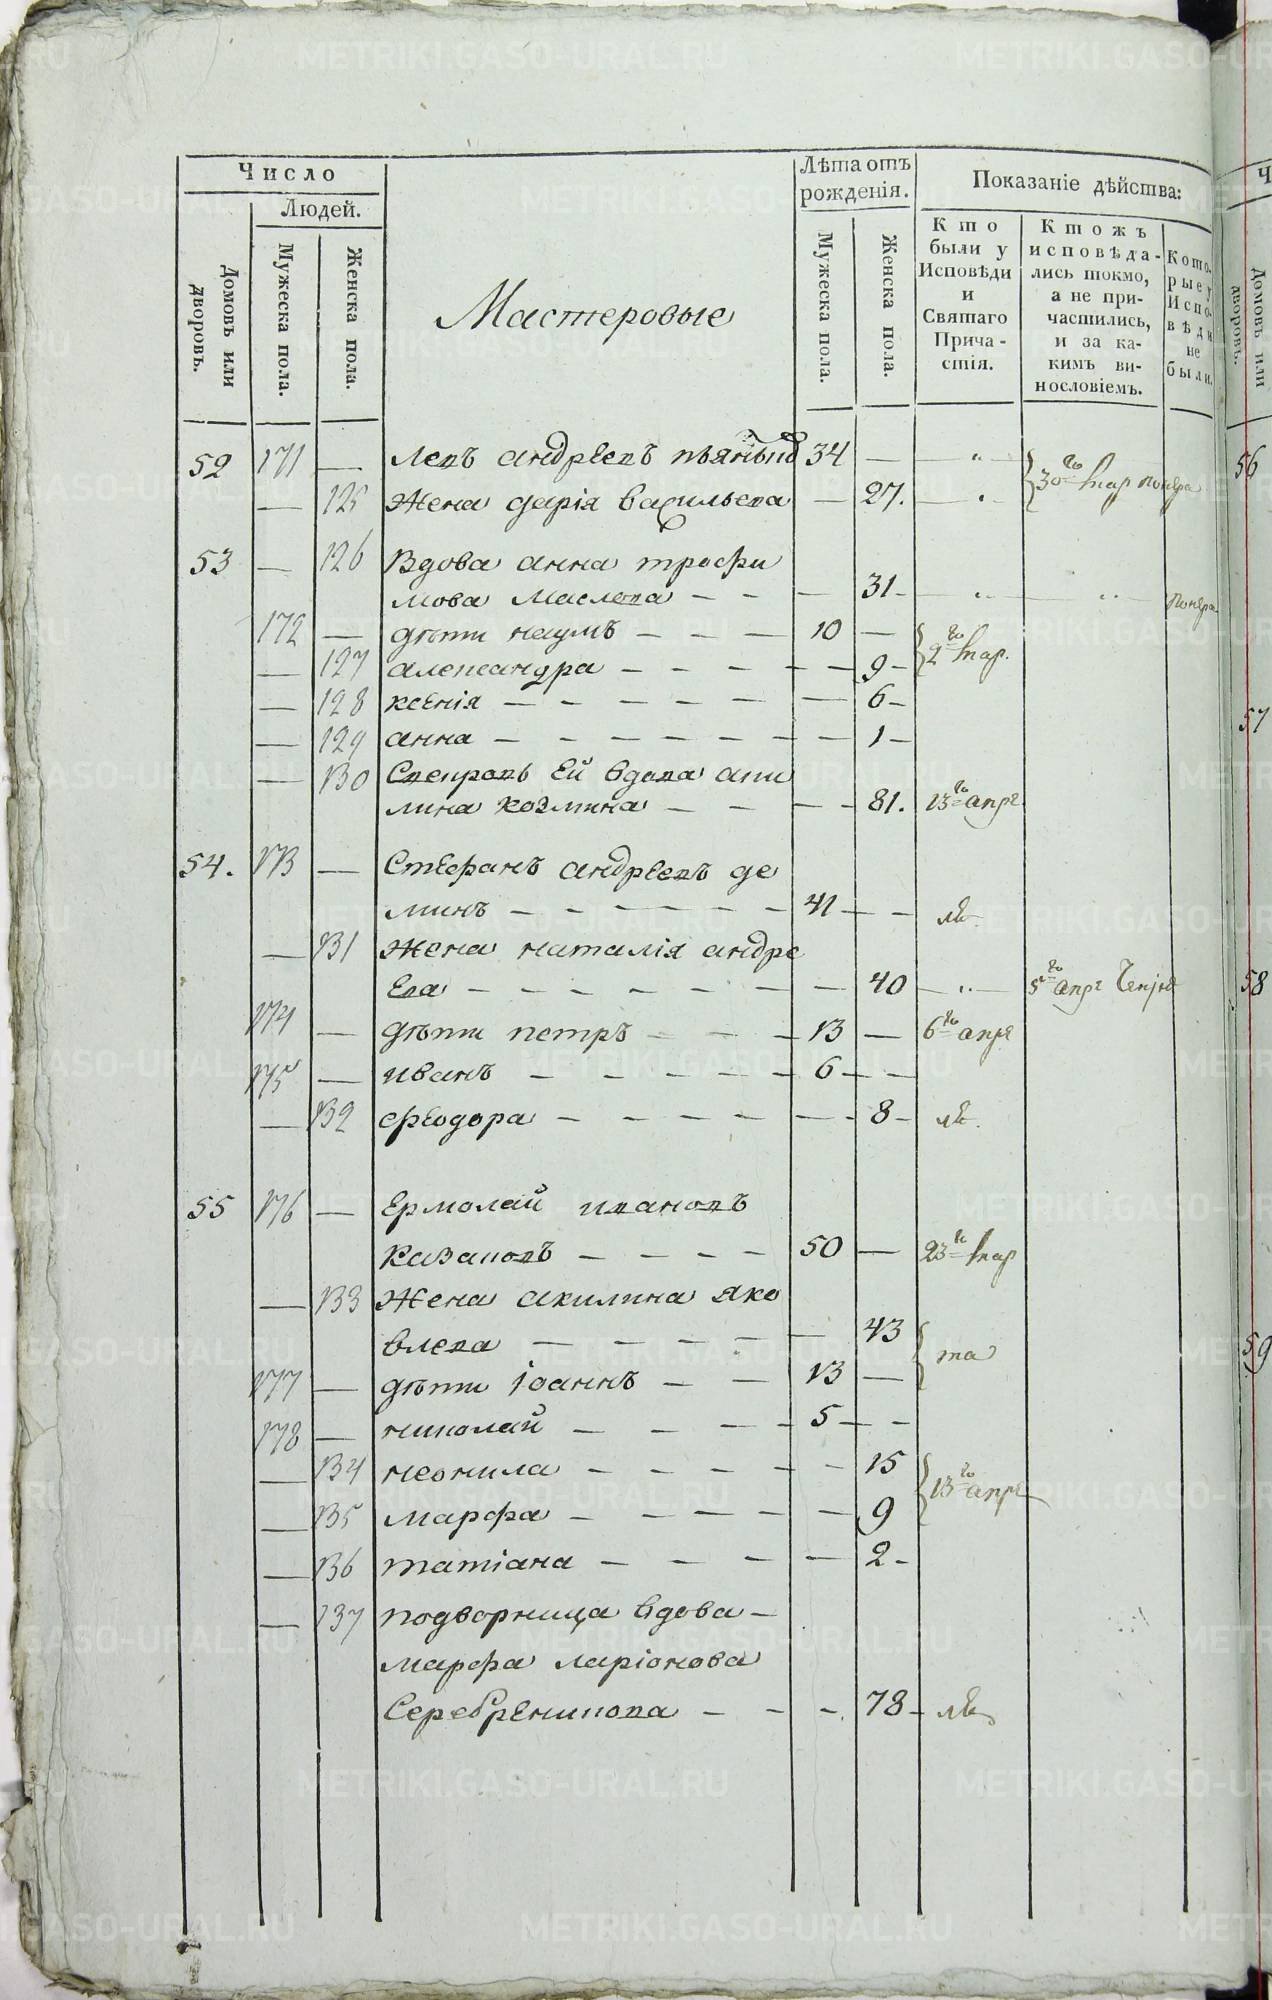 Число
Людей.
Домовъ или дворовъ.
Мужеска пола.
Женска пола.
Мастеровые
Лѣта отъ рожденія.
Мужеска пола.
Женска пола.
Показаніе дѣйства:
Кто были у Исповѣди и Святаго Причастія.
Ктожъ исповѣдались токмо, а не причастились, и за какимъ винословіемъ.
Которые у Исповѣди не были.
52 171 — Левъ андреевъ 34 —
— 125 Жена дарія васильева — 27.
53 — 126 Вдова анна трофи
мова маслова — 31
172 — дѣти наумъ 10 —
— 127 александра — 9 2го мар.
— 128 ксенія — 6
— 129 анна — 1
— 130 Свекровь ей вдова аки
лина козмина — 81. 13го апре
54. 173 — Стефанъ андреевъ де
минъ 41 —
— 131 Жена наталія андре
ева — 40 5го апре
174 — дѣти петръ 13 — 6го апре
175 — иванъ 6 —
— 132 феодора — 8
55 176 — Ермолай ивановъ
Казаковъ 50 — 23го мар
— 133 Жена акилина яко
влева — 43
177 — дѣти іоаннъ 13 — та
178 — николай 5 —
— 134 неонила — 15
— 135 марфа — 9 13го апре
— 136 татіана — 2
— 137 подворница вдова
марфа ларіонова
Серебреникова — 78
Домовъ или дворовъ.
56
57
58
59
METRIKI.GASO-URAL.RU